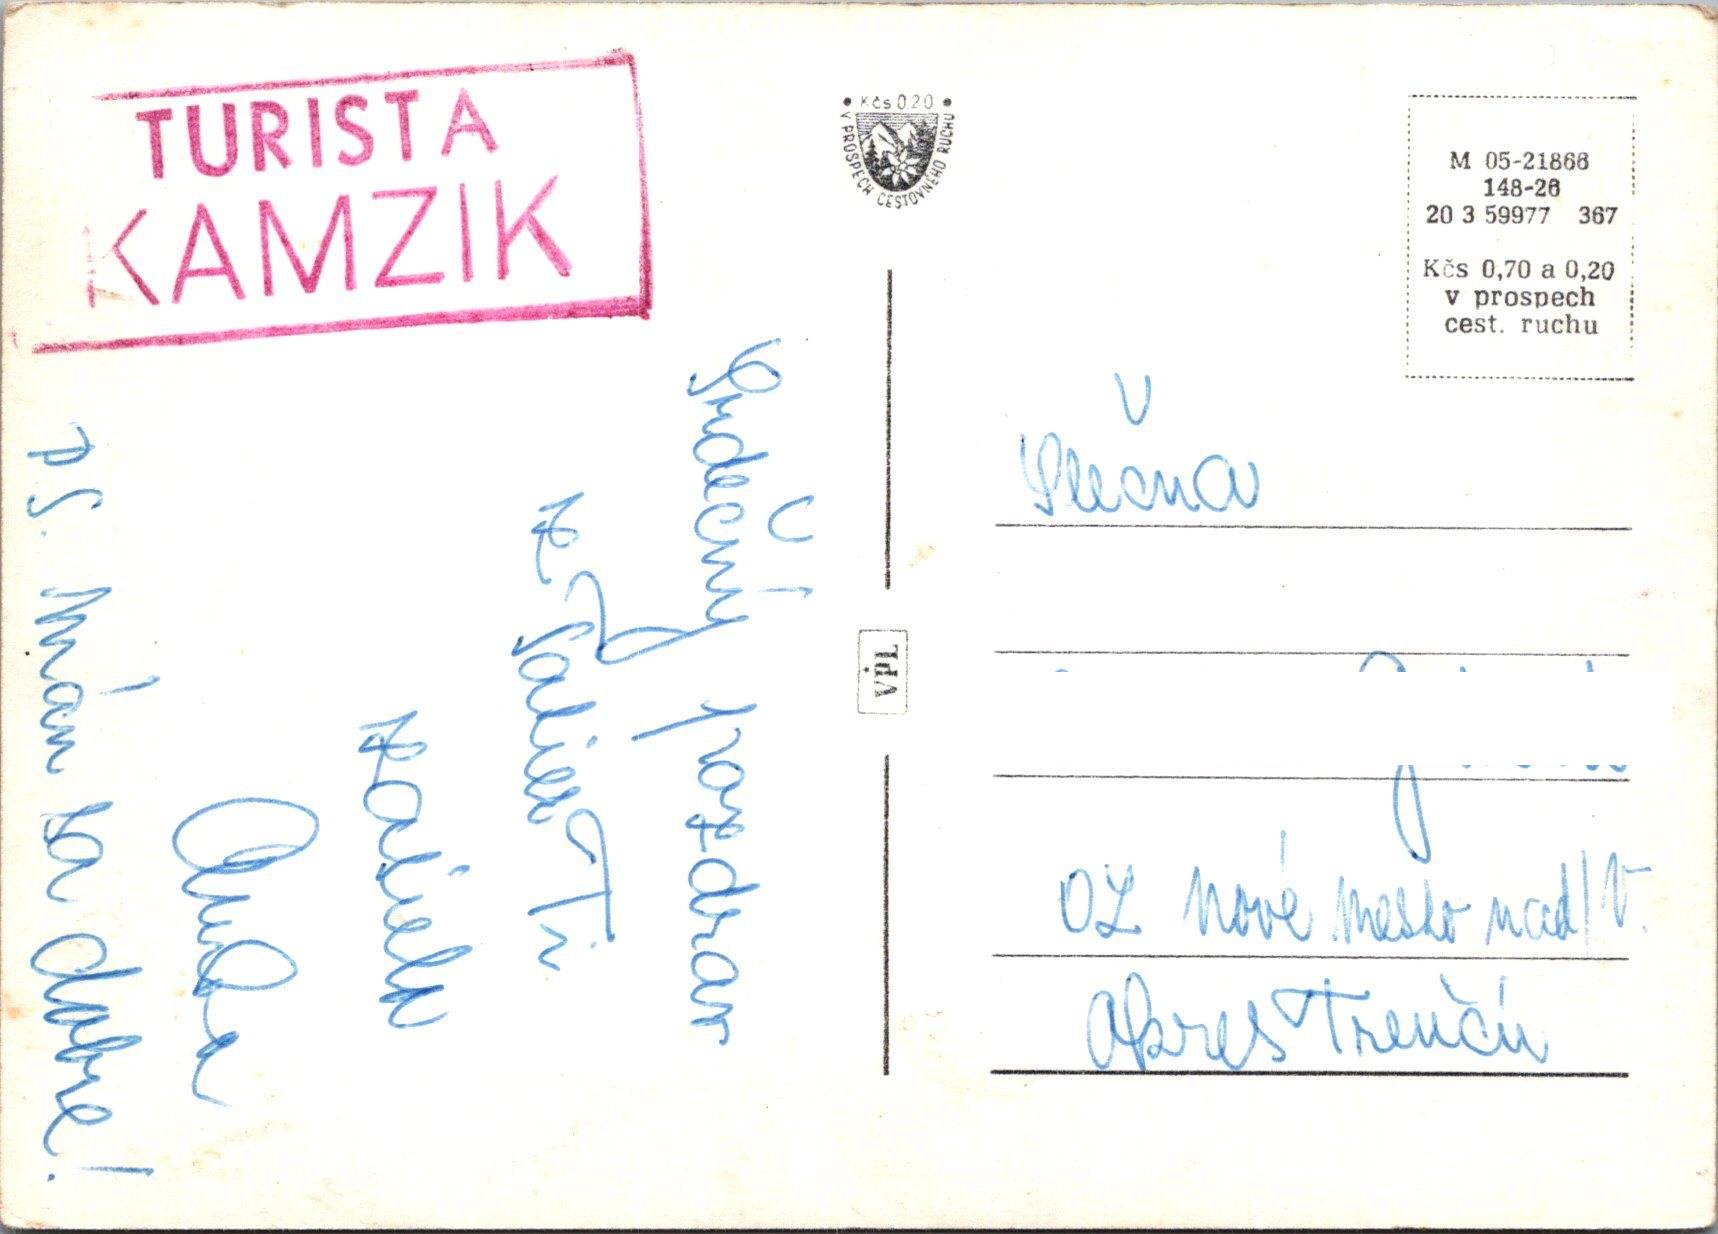 TURISTA
KAMZIK
• Kčs 0.20 •
V PROSPECH CESTOVNÉHO RUCHU
M 05-21866
148-26
20 3 59977 367
Kčs 0,70 a 0,20
v prospech
cest. ruchu
Srdečný pozdrav
z Tatier Ti
zasiela
P.S. Mám sa dobre!
VPL
Slečna
OZ Nové Mesto nad/V.
Okres Trenčín